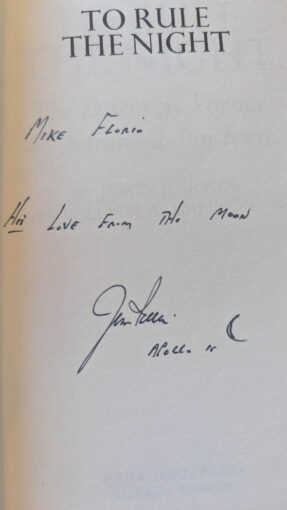 TO RULE
THE NIGHT
MIKE FLORIO
His LOVE FROM THE MOON
Jim Irwin
APOLLO 15